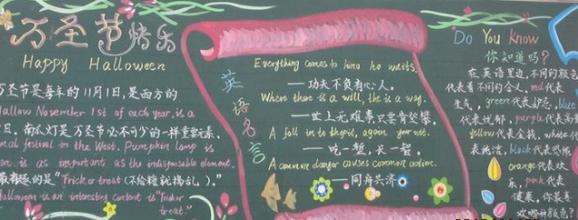 万圣节
Happy Halloween
万圣节是每年的11月1日,是西方的
Hallow November 1st of each year is a
日,南瓜灯是万圣节必不可少的一样重要元素,
festival in the West. Pumpkin lamp is
is as important as the indispensable element.
是"Trick or treat (不给糖就捣乱)."
Halloween is an interesting content is "Trick or
treat."
英语名言
Everything comes to him who waits.
——功夫不负有心人。
Where there is a will, there is a way.
——世上无难事只要肯登攀,
A fall into the pit, a gain in your wit.
——吃一堑,长一智。
A common danger causes common action.
——同舟共济
Do You Know
你知道吗?
在英语里边,不同的颜色
代表着不同的含义,red代表
生气,green代表妒忌,blue
代表忧郁,purple代表高贵
yellow代表
代表纯洁,black代表恐怖
orange代表欢
乐,pink代表
健康,你最喜
欢哪种颜色?